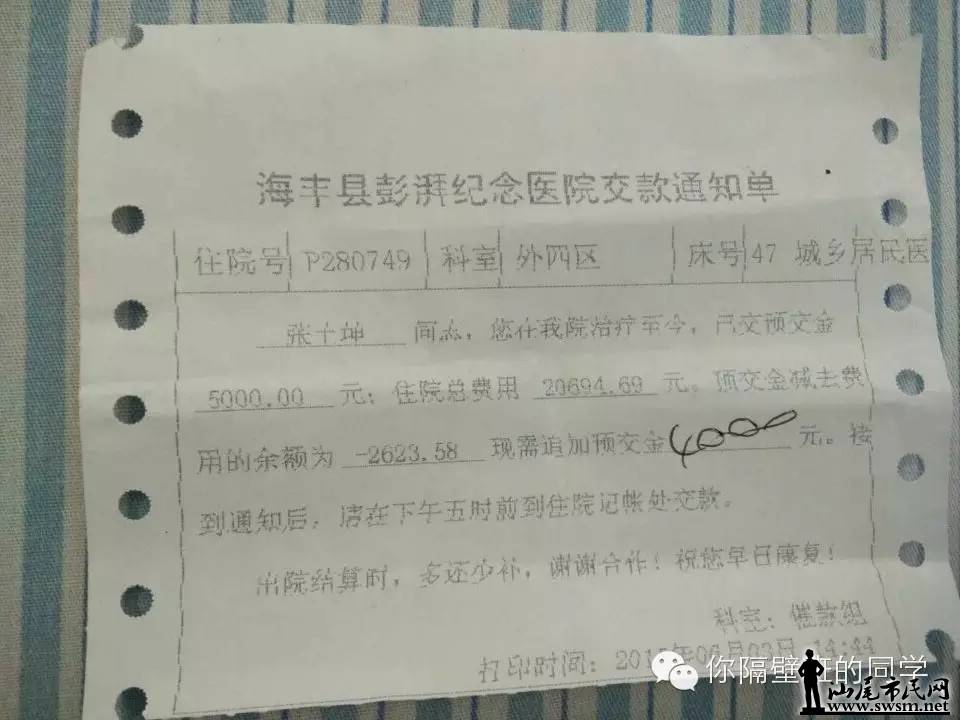 海丰县彭湃纪念医院交款通知单
住院号 P280749 科室 外四区 床号 47 城乡居民医
张十坤 同志，您在我院治疗至今，已交预交金
5000.00 元；住院总费用 20694.69 元。预交金减去费
用的余额为 -2623.58 现需追加预交金 4000 元。接
到通知后，请在下午五时前到住院记帐处交款。
出院结算时，多还少补，谢谢合作！祝您早日康复！
科室：催款组
打印时间：201 年06月03日 14:44
你隔壁班的同学
汕尾市民网
www.swsm.net